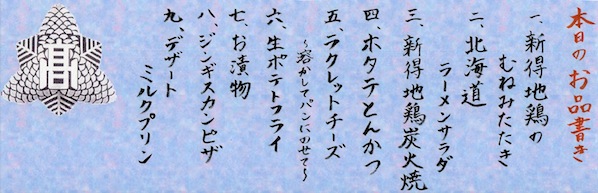 本日のお品書き
一、新得地鶏の
むねみたたき
二、北海道
ラーメンサラダ
三、新得地鶏炭火焼
四、ホタテとんかつ
五、ラクレットチーズ
～溶かしてパンにのせて～
六、生ポテトフライ
七、お漬物
八、ジンギスカンピザ
九、デザート
ミルクプリン
高